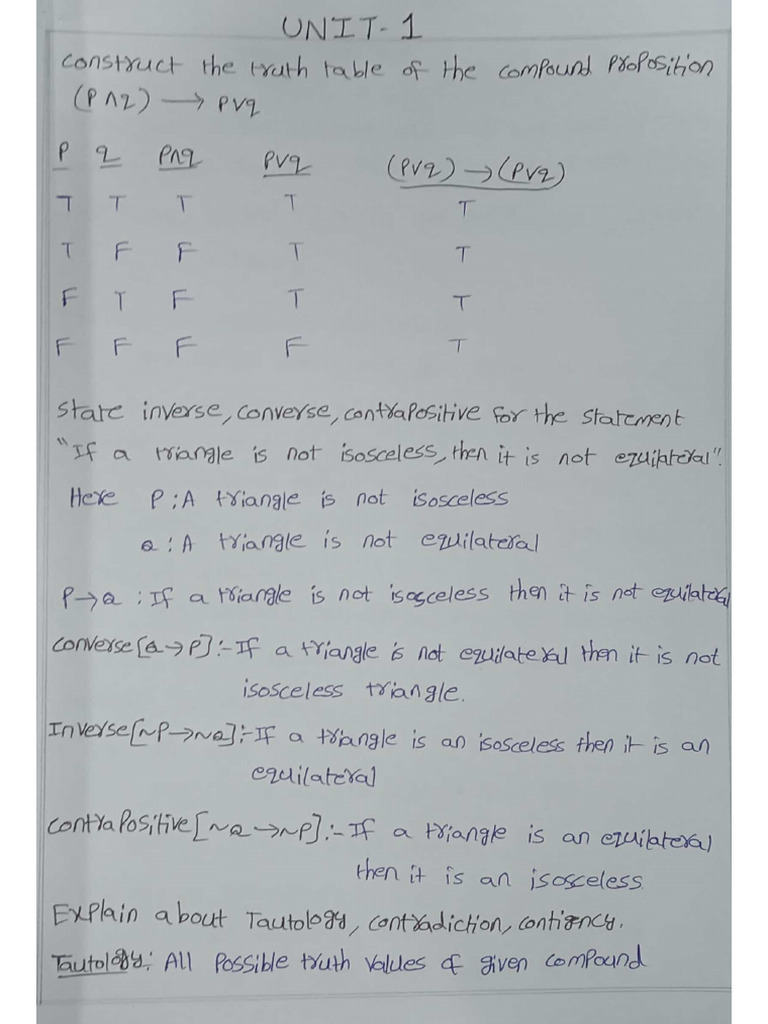 UNIT-1
construct the truth table of the compound proposition
(P∧q) → P∨q
P q P∧q P∨q (P∨q) → (P∨q)
T T T T T
T F F T T
F T F T T
F F F F T
State inverse, converse, contrapositive for the statement
"If a triangle is not isosceless, then it is not equilateral".
Here P : A triangle is not isosceless
Q : A triangle is not equilateral
P→Q : If a triangle is not isosceless then it is not equilateral
Converse [Q→P] :- If a triangle is not equilateral then it is not
isosceless triangle.
Inverse [~P→~Q] :- If a triangle is an isosceless then it is an
equilateral
contrapositive [~Q→~P] :- If a triangle is an equilateral
then it is an isosceless.
Explain about Tautology, contradiction, contigncy.
Tautology: All possible truth values of given compound